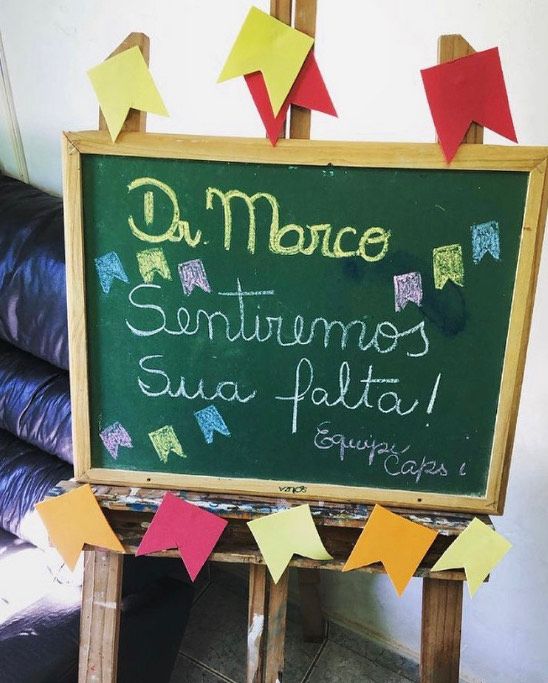 Dr. Marco
Sentiremos
Sua falta!
Equipe
Caps i